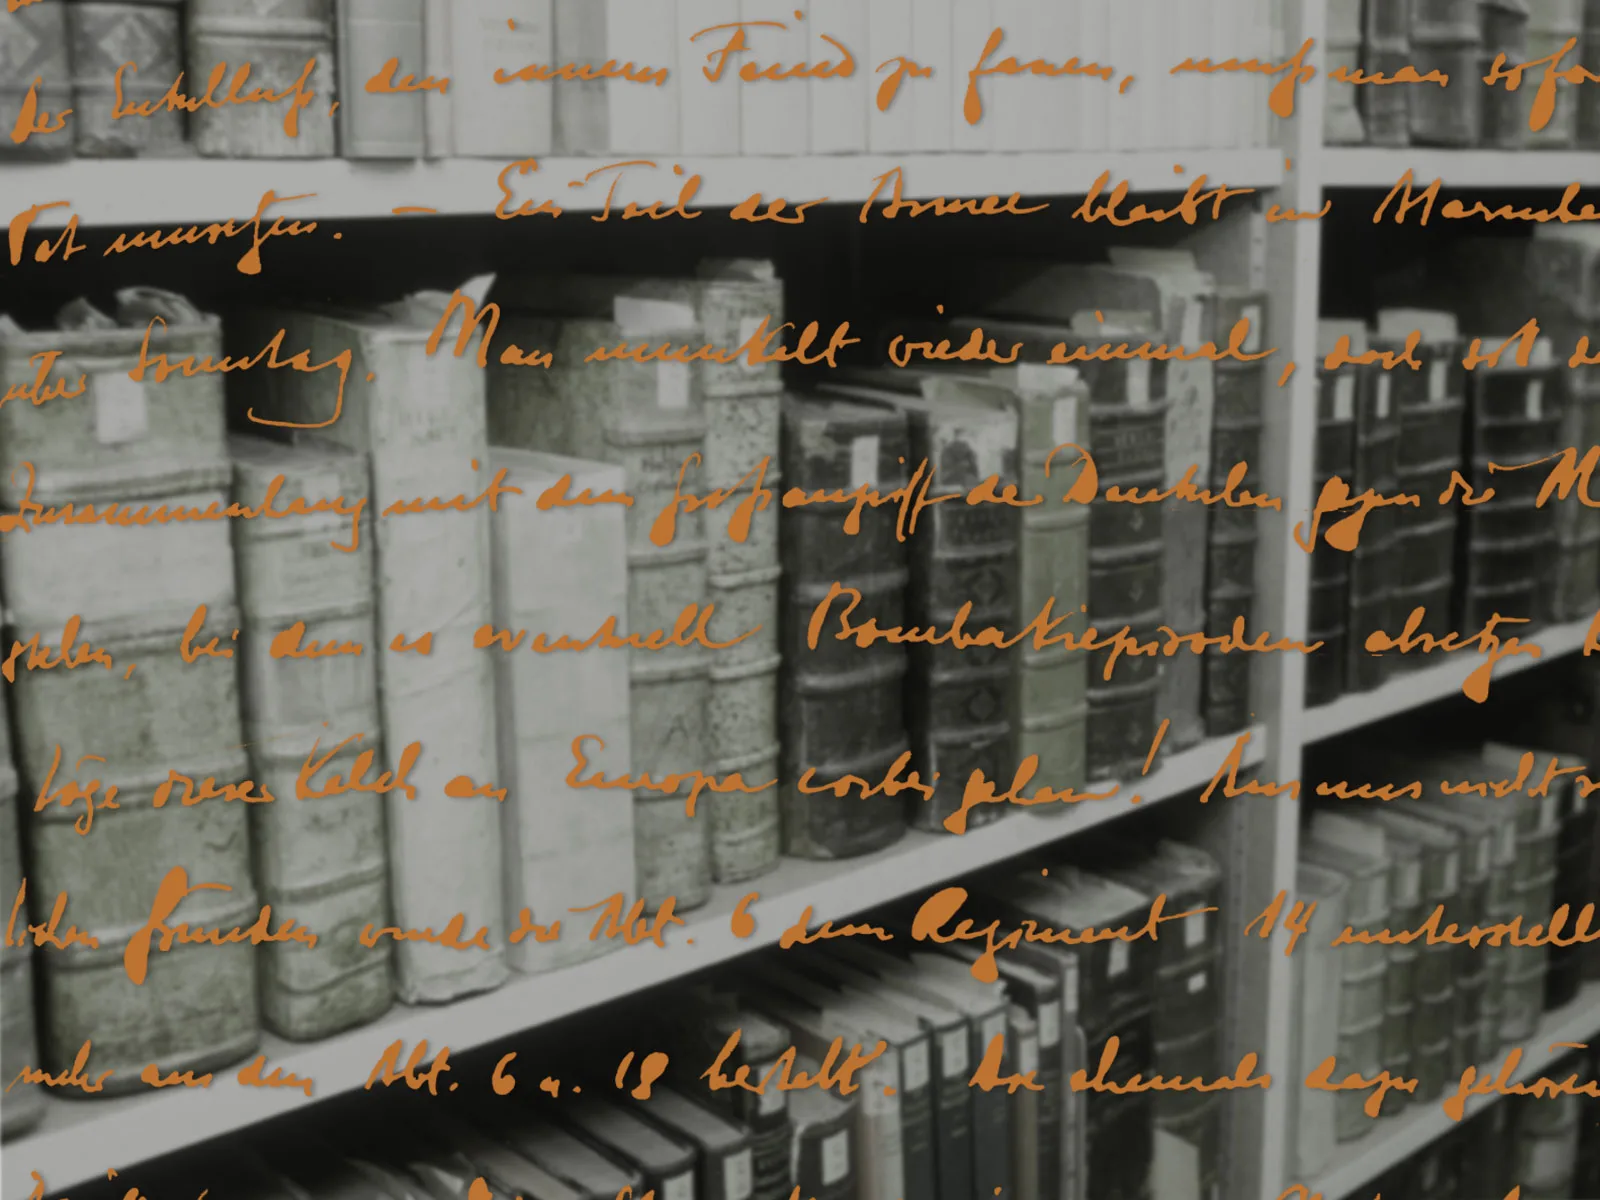 der Entschluß, den innern Feind zu fassen, muß man sofo
Tat umsetzen. — Ein Teil der Armee bleibt in
über Sonntag. Man munkelt wieder einmal, doch soll
Zusammenhang mit dem Großangriff der Dunkeln gegen die M
stehen, bei dem es eventuell Bombaktrepisoden absetzen k
Möge dieser Kelch an Europa vorbei gehen! Aus uns nicht
lichen Gründen wurde die Abt. 6 dem Regiment 14 unterstell
mehr aus den Abt. 6 u. 18 besteht. Die ehemals dazu gehören